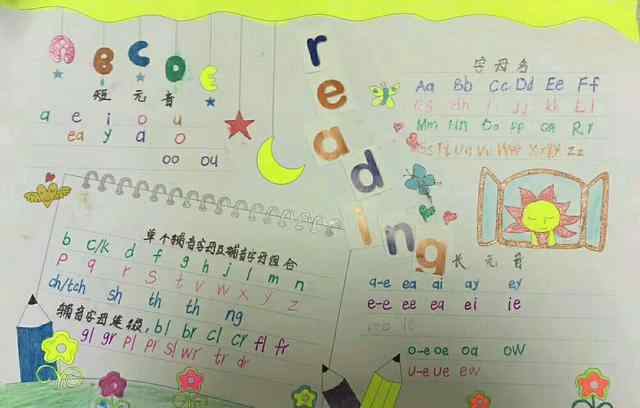 A B C D E
短元音
a e i o u
ea y a o
oo ou
reading
字母名
Aa Bb Cc Dd Ee Ff
Gg Hh Ii Jj Kk Ll
Mm Nn Oo Pp Rr
Ss Tt Uu Vv Ww Xx Yy Zz
单个辅音字母及辅音字母组合
b c/k d f g h j l m n
p q r s t v w x y z
ch/tch sh th th ng
辅音字母连缀, bl br cl cr fl fr
gl gr pl pr sl wr tr dr
长元音
a-e ea ai ay ey
e-e ee ea ei ie
i-e ie
o-e oe oa ow
u-e ue ew